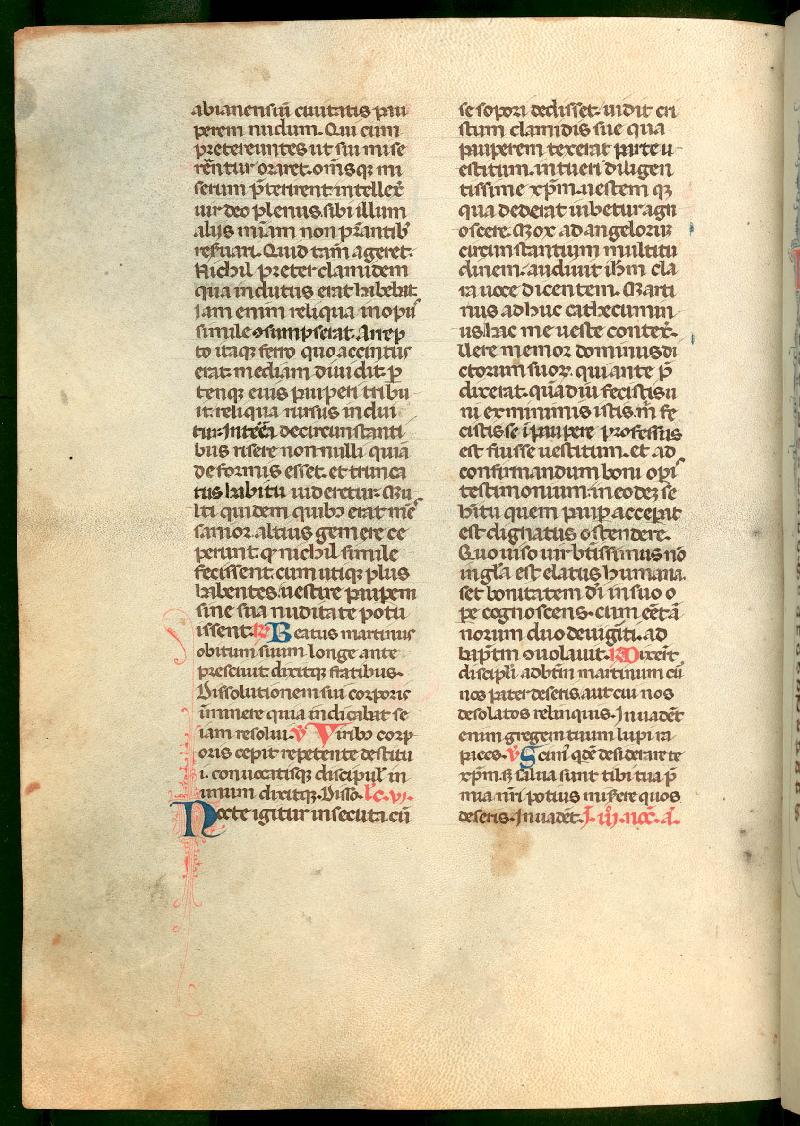 abianensiũ ciuitatis pau
perem nudum. Qui cum
pretereuntes ut sui mise
rẽntur oraret. oms̃q; mi
serum p̃terirent. intellex̃
uir deo plenus. sibi illum
alijs mĩam non p̃stantib᷒
res̃uari. Quid tam̃ ageret.
Nichil preter clamidem
qua indutus erat habebat.
Iam enim reliqua in opus
simile ꝯsumpserat. Arrep
to itaq; ferro quo accintus
erat. mediam diuidit. p
temq; eius pauperi tribu
it. reliqua rursus indui
tur. Interea de circumstanti
bus risere nonnulli quia
deformis esset. et trunca
tus habitu uideretur. Mu
lti quidem quib᷒ erat mẽs
sanior. altius gemere ce
perunt. q̃ nichil simile
fecissent. cum utiq; plus
habentes. uestire pauperem
sine sua nuditate potu
issent. ℟ Beatus martinus
obitum suum longe ante
presciuit. dixitq; fratibus.
Dissolutionem sui corporis
ĩminere quia indicabat se
iam resolui. ℣ Virib᷒ corp
oris cepit repente destitu
i. conuocatisq; discipul̃ in
unum dixitq;. Disso. lc̃. vi.
Nocte igitur insecuta. cũ
se sopori dedisset. uidit cri
stum clamidis sue qua
pauperem texerat parte u
estitum. intueri diligen
tissime xp̃m. uestem q;
qua dederat iubetur agn
oscere. Mox ad angelorum
circumstantium multitu
dinem. audiuit ihm̃ cla
ra uoce dicentem. Marti
nus adhuc cathecumin
us. hac me ueste contex̃.
Uere memor dominus di
ctorum suoꝝ. qui ante p̃
dixerat. quãdiu fecistis u
ni ex minimis istis. m̃ fe
cistis. se ĩ paupere professus
est fuisse uestitum. et ad
confirmandum boni opĩs
testimonium. in eodez se
habitu quem paup acceperit
est dignatus ostendere.
Quo uiso uir btĩssimus nõ
in glã est elatus humana.
set bonitatem dĩ in suo o
pe cognoscens. cum eẽt ã
norum duodeuigĩti. ad
baptm̃ ꝯuolauit. ℟ Dixer̃t
discipli ad btm̃ martinum cũ
nos pater deseris. aut cui nos
desolatos relinquis. Inuadẽt
enim gregem tuum lupi ra
paces. ℣ Scim᷒ qdẽ desiderare te
xp̃m. s; salua sunt tibi tua p̃
mia nr̃i potius miserere quos
deseris. Inuadẽt. J. iij. noc̃. ã.